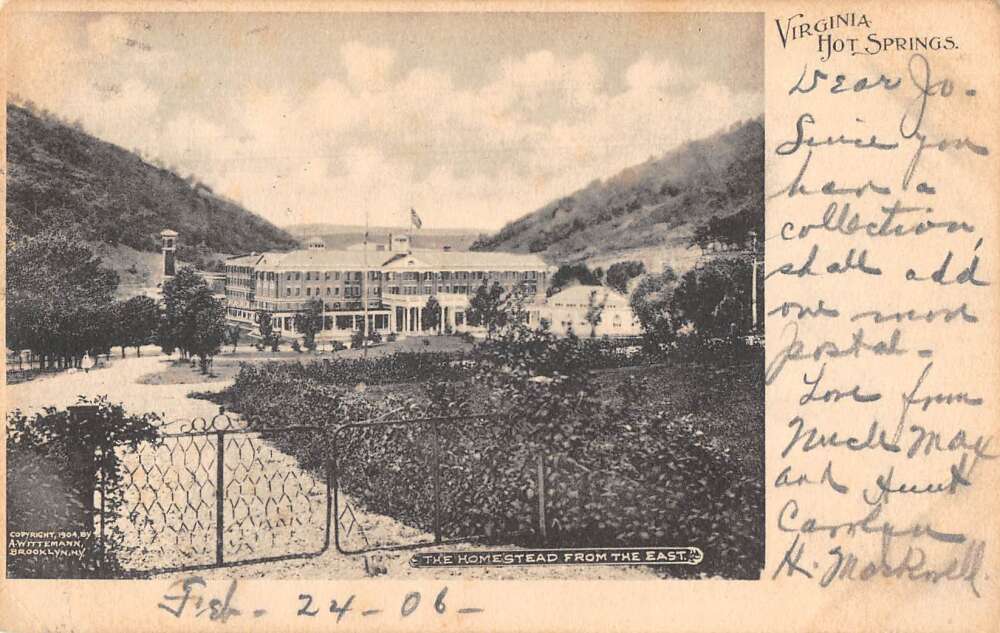 VIRGINIA
HOT SPRINGS.
Dear Jo-
Since you
have a
collection,
shall add
one more
postal-
Love from
Uncle Max
and Aunt
Carolyn
H. Markwell
COPYRIGHT, 1904, BY
A. WITTEMANN,
BROOKLYN, N.Y.
THE HOMESTEAD FROM THE EAST.
Feb- 24- 06-